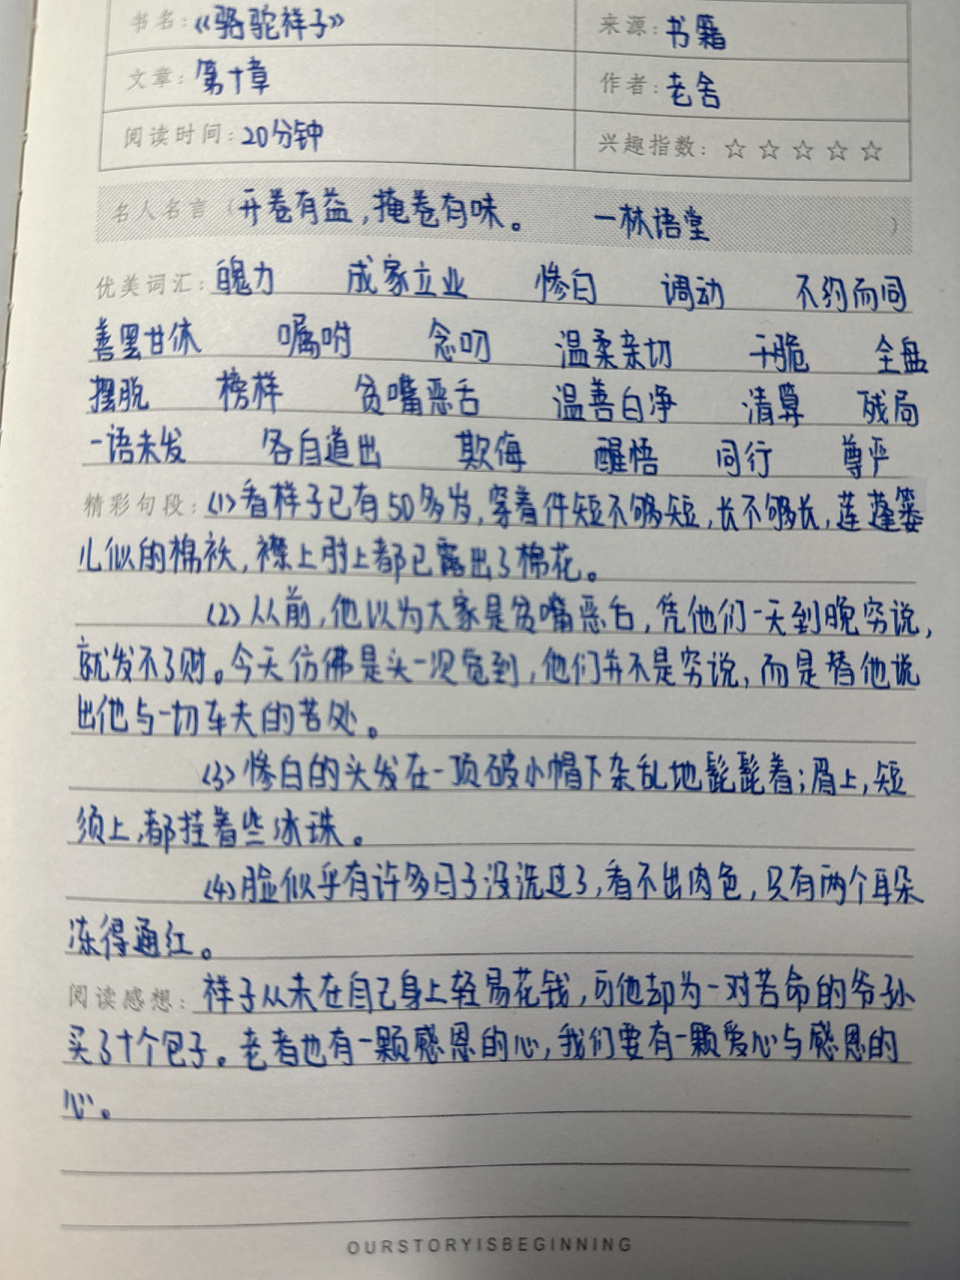 书名:《骆驼祥子》 来源:书籍
文章:第十章 作者:老舍
阅读时间:20分钟 兴趣指数:☆☆☆☆☆
名人名言(开卷有益,掩卷有味。 —林语堂)
优美词汇:魄力 成家立业 惨白 调动 不约而同
善罢甘休 嘱咐 念叨 温柔亲切 干脆 全盘
摆脱 榜样 贫嘴恶舌 温善白净 清算 残局
一语未发 各自道出 欺侮 醒悟 同行 尊严
精彩句段:(1)看样子已有50多岁,穿着件短不够短,长不够长,莲蓬篓
儿似的棉袄,襟上肘上都已露出了棉花。
(2)从前,他以为大家是贫嘴恶舌,凭他们一天到晚穷说,
就发不了财。今天仿佛是头一次觉到,他们并不是穷说,而是替他说
出他与一切车夫的苦处。
(3)惨白的头发在一顶破小帽下杂乱地髭髭着;眉上,短
须上,都挂着些冰珠。
(4)脸似乎有许多日子没洗过了,看不出肉色,只有两个耳朵
冻得通红。
阅读感想:祥子从未在自己身上轻易花钱,可他却为一对苦命的爷孙
买了十个包子。老者也有一颗感恩的心,我们要有一颗爱心与感恩的
心。
OURSTORYISBEGINNING